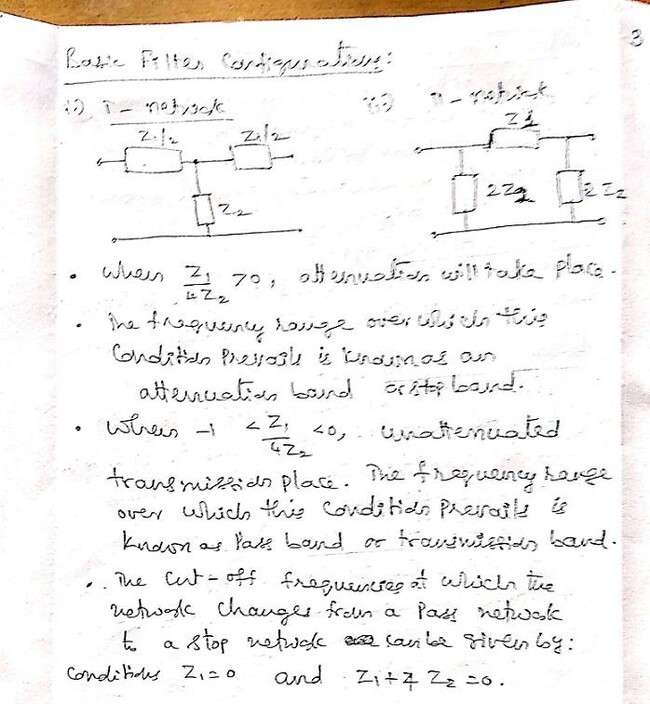 3
Basic Filter Configurations:
(i) T - network (ii) π - network
Z₁/2 Z₁/2 Z1
Z₂ 2Z2 2Z₂
• When Z₁/4Z₂ >0, attenuation will take place.
• The frequency range over which this
Condition Prevails is known as an
attenuation band or stop band.
• When -1 < Z₁/4Z₂ <0, unattenuated
transmission place. The frequency range
over which this Condition Prevails is
known as Pass band or transmission band.
• The Cut-off frequencies at which the
network changes from a Pass network
to a stop network can be given by:
Conditions Z₁=0 and Z₁+4 Z₂ =0.